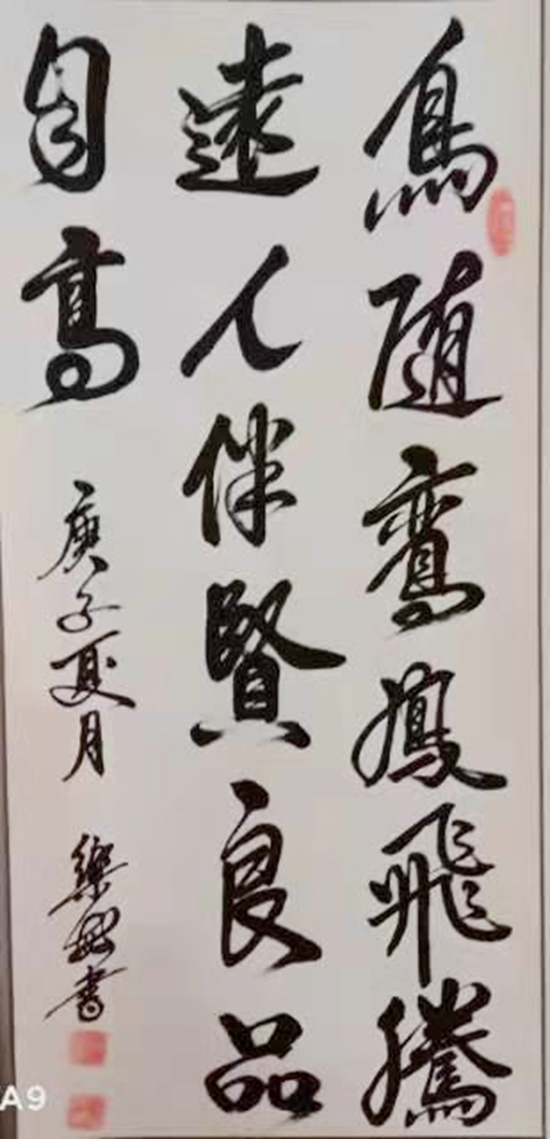 鳥随鸞鳳飛騰
遠人伴賢良品
自高
庚子夏月
書
A9